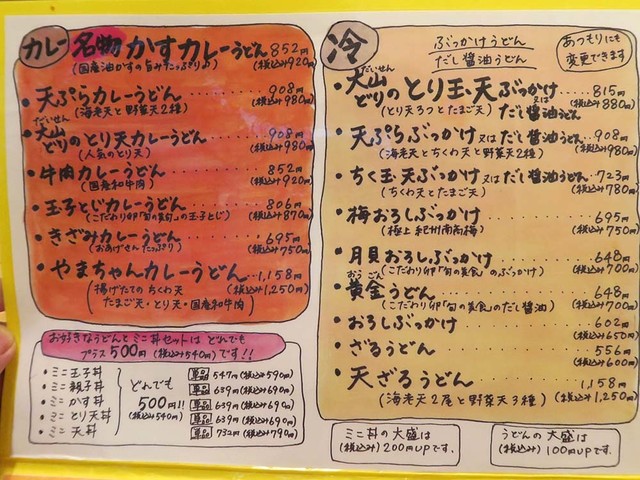 カレー 名物 かすカレーうどん 852円
(国産油かすの旨みたっぷり♪) (税込み920円)
・天ぷらカレーうどん 908円
(海老天と野菜天2種) (税込み980円)
・大山どりのとり天カレーうどん 908円
だいせん
(人気のとり天) (税込み980円)
・牛肉カレーうどん 852円
(国産和牛肉) (税込み920円)
・玉子とじカレーうどん 806円
(こだわり卵「旬の美食」の玉子とじ) (税込み870円)
・きざみカレーうどん 695円
(おあげさんたっぷり) (税込み750円)
・やまちゃんカレーうどん 1,158円
(揚げたての ちくわ天 (税込み1,250円)
たまご天・とり天・国産和牛肉)
お好きなうどんとミニ丼セットは どれでも
プラス500円(税込み540円)です!!
・ミニ玉子丼 単品 547円(税込み590円)
・ミニ親子丼 単品 639円(税込み690円)
・ミニかす丼 単品 639円(税込み690円)
・ミニとり天丼 単品 639円(税込み690円)
・ミニ天丼 単品 732円(税込み790円)
どれでも
500円!!
(税込み540円)
冷 ぶっかけうどん
だし醤油うどん
あつもりにも
変更できます
だいせん
・大山どりのとり玉天ぶっかけ 又は だし醤油うどん 815円
(とり天3つとたまご天) (税込み880円)
・天ぷらぶっかけ 又は だし醤油うどん 908円
(海老天とちくわ天と野菜天2種) (税込み980円)
・ちく玉天ぶっかけ 又は だし醤油うどん 723円
(ちくわ天とたまご天) (税込み780円)
・梅おろしぶっかけ 695円
(極上 紀州南高梅) (税込み750円)
・月見おろしぶっかけ 648円
(こだわり卵「旬の美食」のぶっかけ) (税込み700円)
おうごん
・黄金うどん 648円
(こだわり卵「旬の美食」のだし醤油) (税込み700円)
・おろしぶっかけ 602円
(税込み650円)
・ざるうどん 556円
(税込み600円)
・天ざるうどん 1,158円
(海老天2尾と野菜天3種) (税込み1,250円)
ミニ丼の大盛は
(税込み)200円UPです。
うどんの大盛は
(税込み)100円UPです。